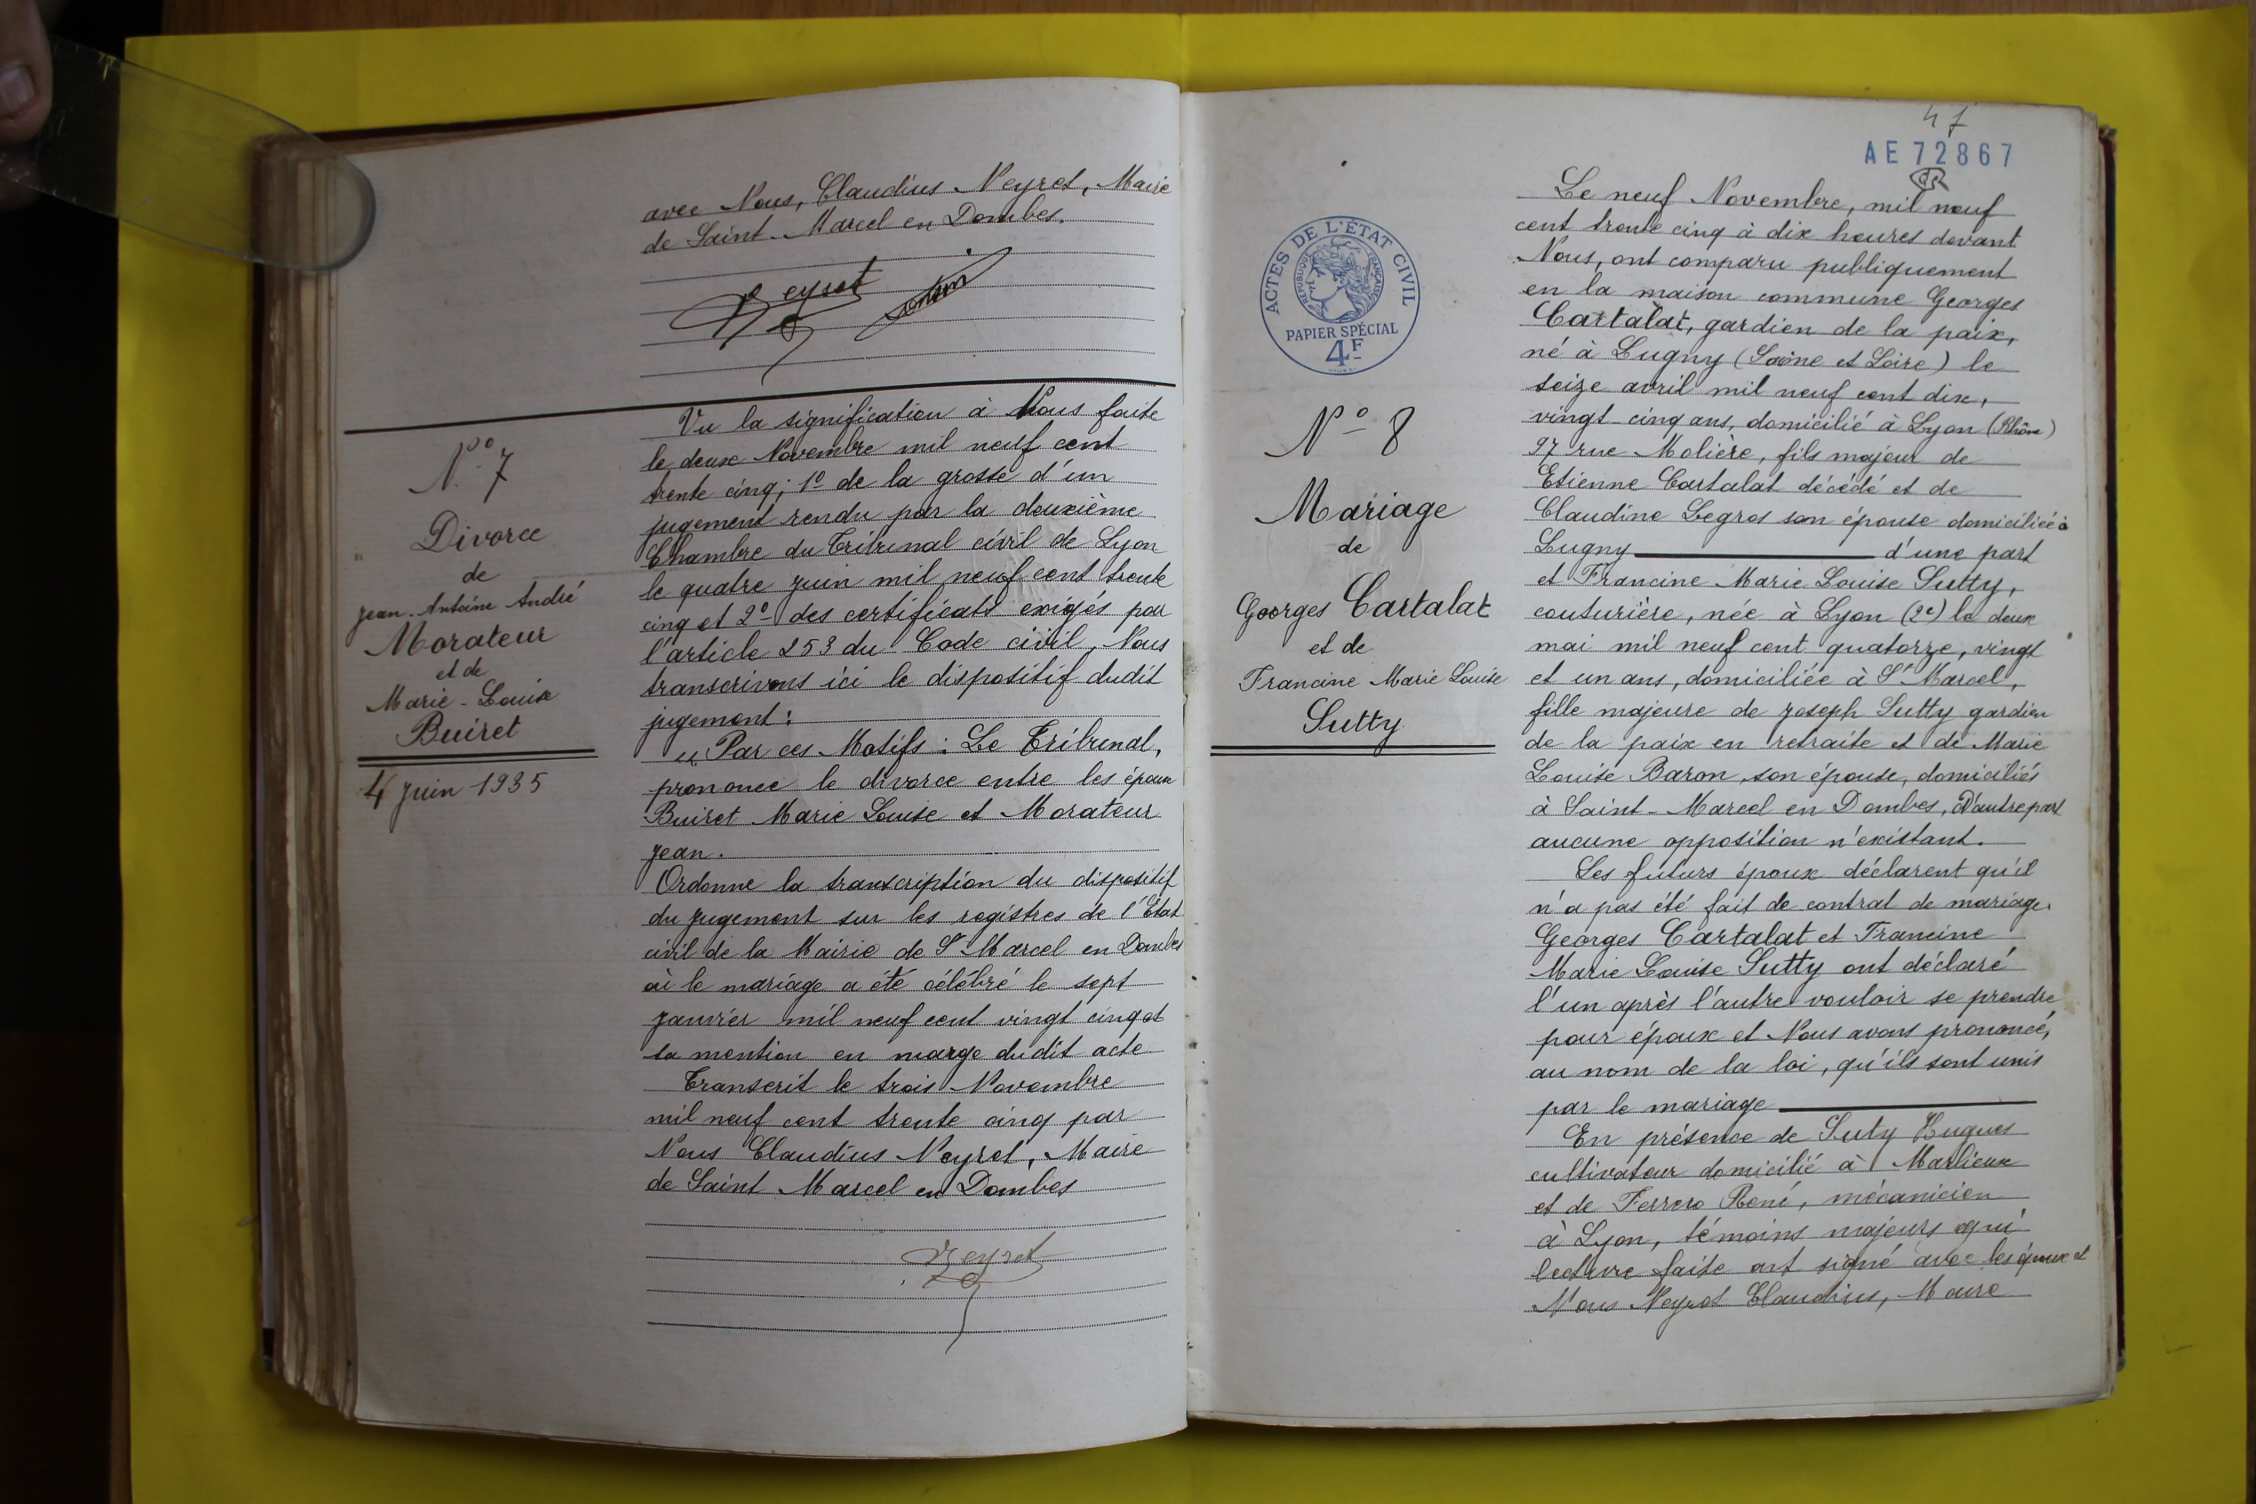 avec Nous, Claudius Neyret, Maire
de Saint-Marcel en Dombes.
Neyret
N° 7
Divorce
de
Jean-Antoine André
Morateur
et de
Marie-Louise
Buiret
4 Juin 1935
Vu la signification à Nous faite
le deux Novembre mil neuf cent
trente cinq; 1° de la grosse d'un
jugement rendu par la deuxième
Chambre du Tribunal civil de Lyon
le quatre juin mil neuf cent trente
cinq et 2° des certificats exigés par
l'article 253 du Code civil, Nous
transcrivons ici le dispositif dudit
jugement:
"Par ces Motifs: Le Tribunal,
prononce le divorce entre les époux
Buiret Marie Louise et Morateur
Jean.
Ordonne la transcription du dispositif
du jugement sur les registres de l'Etat
civil de la Mairie de St Marcel en Dombes
où le mariage a été célébré le sept
janvier mil neuf cent vingt cinq et
sa mention en marge dudit acte
Transcrit le trois Novembre
mil neuf cent trente cinq par
Nous Claudius Neyret, Maire
de Saint Marcel en Dombes
Neyret
47
AE 72867
ACTES DE L'ÉTAT CIVIL
RÉPUBLIQUE FRANÇAISE
PAPIER SPÉCIAL
4F
N° 8
Mariage
de
Georges Cartalat
et de
Francine Marie Louise
Sutty
Le neuf Novembre, mil neuf
cent trente cinq à dix heures devant
Nous, ont comparu publiquement
en la maison commune Georges
Cartalat, gardien de la paix,
né à Lugny (Saône et Loire) le
seize avril mil neuf cent dix,
vingt-cinq ans, domicilié à Lyon (Rhône)
97 rue Molière, fils majeur de
Etienne Cartalat décédé et de
Claudine Legros son épouse domiciliée à
Lugny d'une part
et Francine Marie Louise Sutty,
couturière, née à Lyon (2e) le deux
mai mil neuf cent quatorze, vingt
et un ans, domiciliée à St Marcel,
fille majeure de Joseph Sutty gardien
de la paix en retraite et de Marie
Louise Baron, son épouse, domiciliés
à Saint-Marcel en Dombes, D'autre part
aucune opposition n'existant.
Les futurs époux déclarent qu'il
n'a pas été fait de contrat de mariage.
Georges Cartalat et Francine
Marie Louise Sutty ont déclaré
l'un après l'autre vouloir se prendre
pour époux et Nous avons prononcé,
au nom de la loi, qu'ils sont unis
par le mariage
En présence de Suty Hugues
cultivateur domicilié à Marlieux
et de Ferrero René, mécanicien
à Lyon, témoins majeurs qui
lecture faite ont signé avec les époux et
Nous Neyret Claudius, Maire